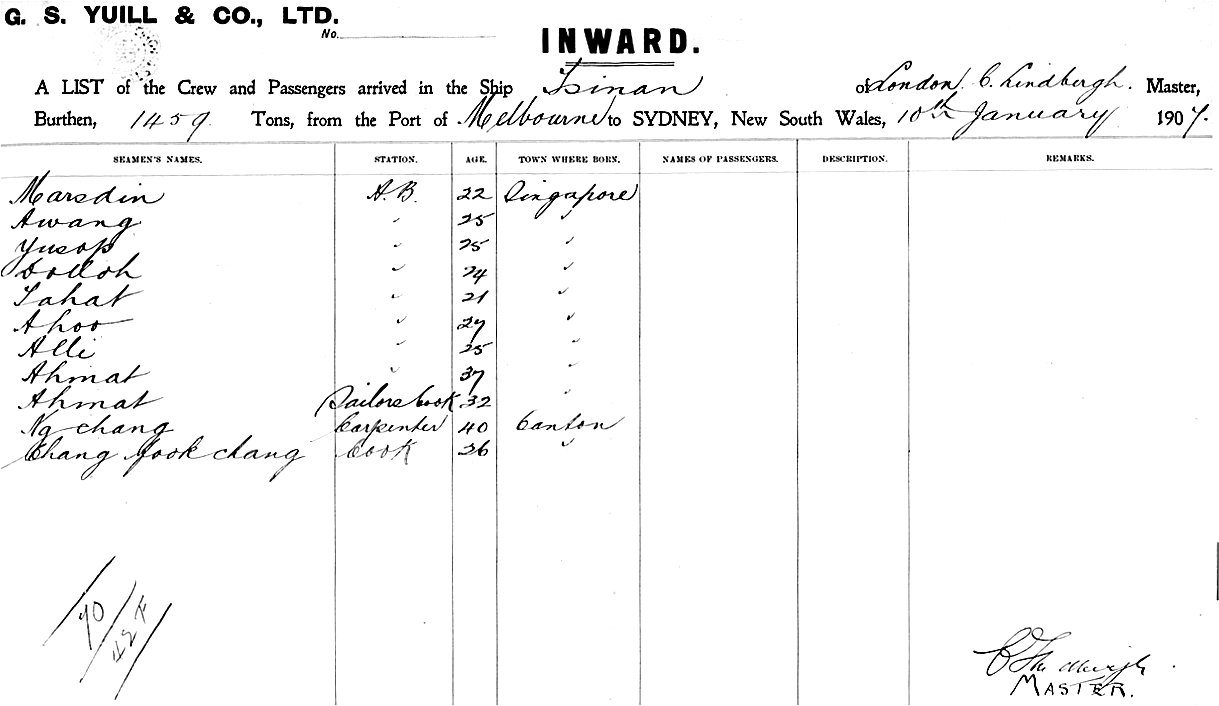 G. S. YUILL & CO., LTD.
No.
INWARD.
A LIST of the Crew and Passengers arrived in the Ship Tsinan of London, C. Lindbergh. Master,
Burthen, 1459. Tons, from the Port of Melbourne to SYDNEY, New South Wales, 10th January 1907.
SEAMEN'S NAMES. STATION. AGE. TOWN WHERE BORN. NAMES OF PASSENGERS. DESCRIPTION. REMARKS.
Marsdin A.B. 22 Singapore
Awang " 25 "
Yusop " 25 "
Dolloh " 24 "
Tahat " 21 "
Ahoo " 27 "
Alli " 25 "
Ahmat " 37 "
Ahmat Sailors Cook 32 "
Ng chang Carpenter 40 Canton
Chang Fook chang Cook 36 "
MASTER.